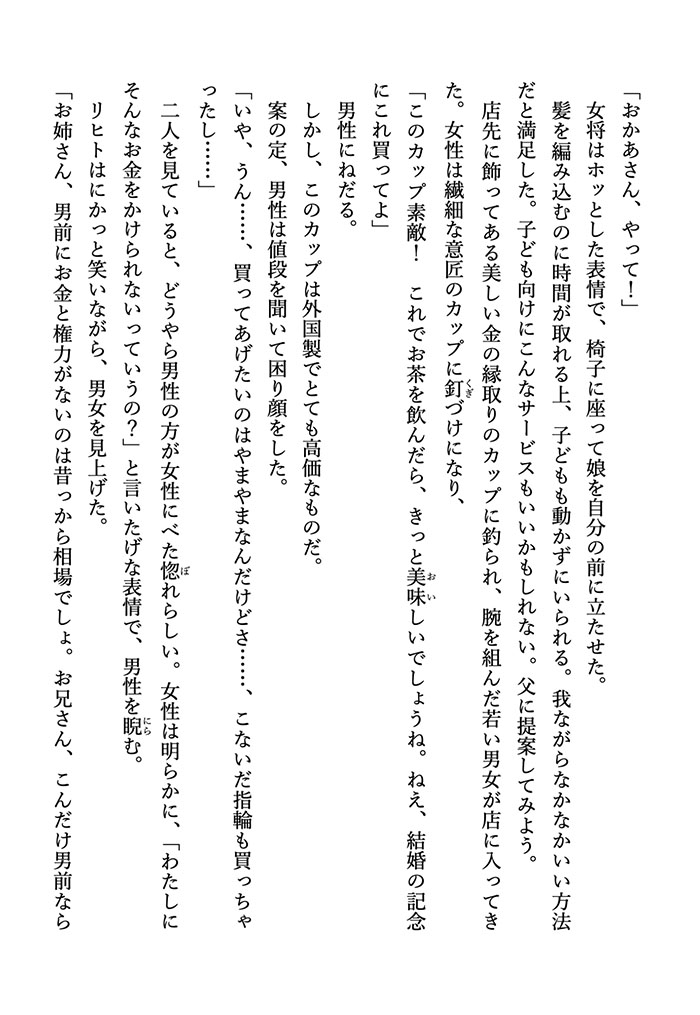 「おかあさん、やって！」
女将はホッとした表情で、椅子に座って娘を自分の前に立たせた。
髪を編み込むのに時間が取れる上、子どもも動かずにいられる。我ながらなかなかいい方法
だと満足した。子ども向けにこんなサービスもいいかもしれない。父に提案してみよう。
店先に飾ってある美しい金の縁取りのカップに釣られ、腕を組んだ若い男女が店に入ってき
た。女性は繊細な意匠のカップに釘づけになり、
「このカップ素敵！　これでお茶を飲んだら、きっと美味しいでしょうね。ねえ、結婚の記念
にこれ買ってよ」
男性にねだる。
しかし、このカップは外国製でとても高価なものだ。
案の定、男性は値段を聞いて困り顔をした。
「いや、うん……、買ってあげたいのはやまやまなんだけどさ……、こないだ指輪も買っちゃ
ったし……」
二人を見ていると、どうやら男性の方が女性にべた惚れらしい。女性は明らかに、「わたしに
そんなお金をかけられないっていうの？」と言いたげな表情で、男性を睨む。
リヒトはにかっと笑いながら、男女を見上げた。
「お姉さん、男前にお金と権力がないのは昔っから相場でしょ。お兄さん、こんだけ男前なら